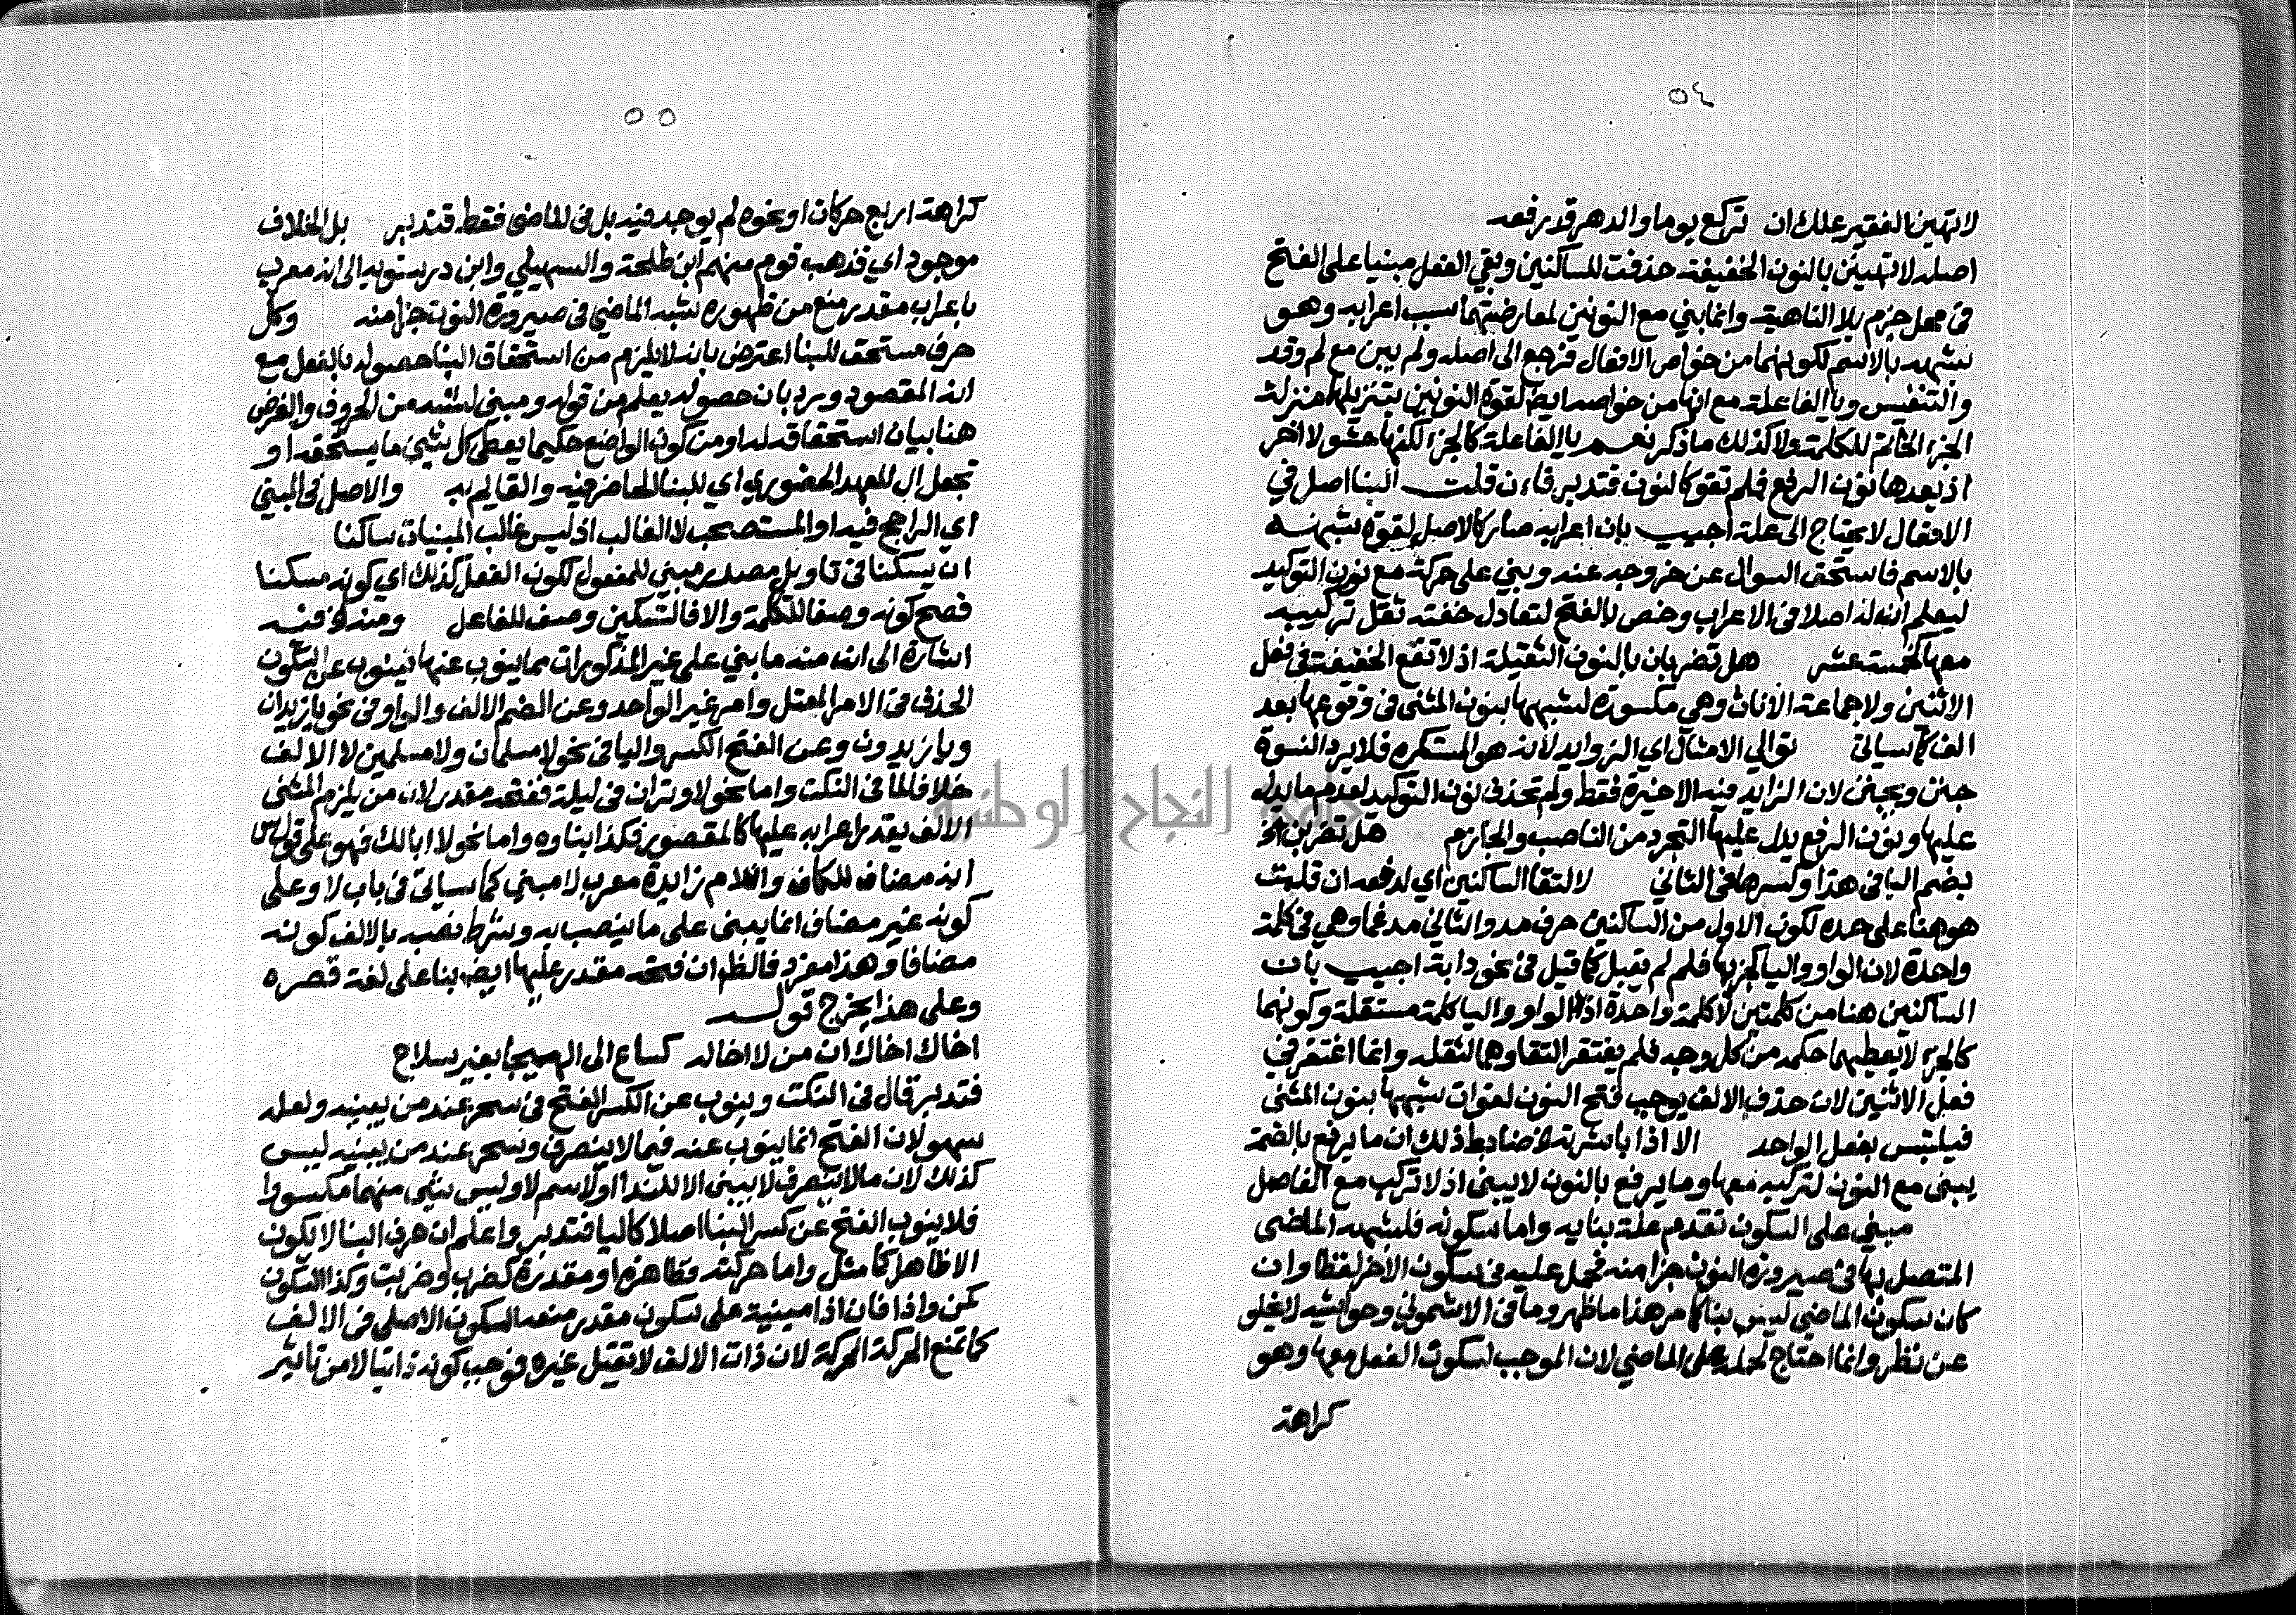 ٥٤
لا تهين الفقير علك ان تركع يوما والدهر قد رفعه
اصله لا تهينن بالنون الخفيفة حذفت للساكنين وبقي الفعل مبنيا على الفتح
في محل جزم بلا الناهية وانما بني مع النونين لمعارضتهما سبب اعرابه وهو
شبهه بالاسم لكونهما من خواص الافعال فرجع الى اصله ولم يبن مع لم وقد
والتنفيس ويا الفاعلة مع انها من خواصه ايض لقوة النونين بتنزيلهما منزلة
الجزء الخاتم للكلمة ولا كذلك ما ذكر نعم يا الفاعلة كالجزء لكنها حشو لا اخر
اذ بعدها نون الرفع فلم تقو كالنون فتدبر فان قلت البنا اصل في
الافعال لا يحتاج الى علة اجيب بان اعرابه صار كالاصل لقوة شبهه
بالاسم فاستحق السوال عن خروجه عنه وبني على حركة مع نون التوكيد
ليعلم ان له اصلا في الاعراب وخص بالفتح لتعادل خفته ثقل تركيبه
معها كخمسة عشر هل تضربان بالنون الثقيلة اذ لا تقع الخفيفة في فعل
الاثنين ولا جماعة الاناث وهي مكسورة لشبهها بنون المثنى في وقوعها بعد
الف كما سياتي توالي الامثال اي الزوايد لانه هو المستكره فلا يرد النسوة
جنن ويجنن لان الزايد فيه الاخيرة فقط ولم تحذف نون التوكيد لعدم ما يدل
عليها ونون الرفع يدل عليها التجرد من الناصب والجازم هل تضربن الخ
بضم البا في هذا وكسرها في الثاني لالتقا الساكنين اي لدفعه ان قلت
هو هنا على حده لكون الاول من الساكنين حرف مد والثاني مدغما وهي في كلمة
واحدة لان الواو واليا كجزيها فلم لم يقبل كما قيل في نحو دابة اجيب بان
الساكنين هنا من كلمتين لا كلمة واحدة اذ الواو واليا كلمة مستقلة وكونهما
كالجزء لا يعطيهما حكمه من كل وجه فلم يغتفر التقاوهما لثقله وانما اغتفر في
فعل الاثنين لان حذف الالف يوجب فتح النون لفوات شبهها بنون المثنى
فيلتبس بفعل الواحد الا اذا باشرته لا ضابط ذلك ان ما يرفع بالضمة
يبنى مع النون لتركيبه معها وما يرفع بالنون لا يبنى اذ لا تركب مع الفاصل
مبني على السكون تقدم علة بنايه واما سكونه فلشبهه الماضى
المتصل بها في صيرورة النون جزا منه فحمل عليه في سكون الاخر لفظا وان
كان سكون الماضي ليس بنا كما مر هذا ما ظهر وما في الاشموني وحواشيه لا يخلو
عن نظر وانما احتاج لحمله على الماضي لان الموجب لسكون الفعل معها وهو
كراهة
٥٥
كراهة اربع حركات او نحوه لم يوجد فيه بل في الماضى فقط فتدبر بل الخلاف
موجود اي فذهب قوم منهم ابن طلحة والسهيلي وابن درستويه الى انه معرب
باعراب مقدر منع من ظهوره شبه الماضي في صيرورة النون جزا منه وكل
حرف مستحق للبنا اعترض بانه لا يلزم من استحقاق البنا حصوله بالفعل مع
انه المقصود ورد بان حصوله يعلم من قوله ومبنى لشبه من الحروف والغرض
هنا بيان استحقاقه له او من كون الواضع حكيما يعطي كل شيء ما يستحقه او
تجعل ال للعهد الحضوري اي للبنا الحاضر فيه والقايم به والاصل في المبني
اي الراجح فيه او المستصحب لا الغالب اذ ليس غالب المبنيات ساكنا
ان يسكنا في تاويل مصدر مبني للمفعول لكون الفعل كذلك اي كونه مسكنا
فصح كونه وصفا للكلمة والا فالتسكين وصف للفاعل ومنه ذو فتح
اشارة الى ان منه ما بني على غير المذكورات مما ينوب عنها فينوب عن السكون
الحذف في الامر المعتل وامر غير الواحد وعن الضم الالف والواو في نحو يا زيدان
ويا زيدون وعن الفتح الكسر واليا في نحو لا مسلمان ولا مسلمين لا الالف
خلافا لما في النكت واما نحو لا وتران في ليلة ففتحه مقدر لان من يلزم المثنى
الالف يقدر اعرابه عليها كالمقصور فكذا بناوه واما نحو لا ابا لك فهو على قول س
انه مضاف للكاف واللام زايدة معرب لا مبني كما سياتي في باب لا وعلى
كونه غير مضاف انما يبنى على ما ينصب به وشرط نصبه بالالف كونه
مضافا وهذا مفرد فالظ ان فتحه مقدر عليها ايض بنا على لغة قصره
وعلى هذا يخرج قوله
اخاك اخاك ان من لا اخا له كساع الى الهيجا بغير سلاح
فتدبر قال في النكت وينوب عن الكسر الفتح في سحر عند من يبنيه ولعله
سهو لان الفتح انما ينوب عنه فيما لا ينصرف وسحر عند من يبنيه ليس
كذلك لان ما لا ينصرف لا يبنى الا للندا او لاسم لا وليس شي منهما مكسورا
فلا ينوب الفتح عن كسر البنا اصلا كاليا فتدبر واعلم ان حرف البنا لا يكون
الا ظاهرا كما مثل واما حركته فظاهرة او مقدرة كضرب وضربت وكذا السكون
كمن واذا فان اذا مبنية على سكون مقدر منعه السكون الاصلي في الالف
كما تمنع الحركة الحركة لان ذات الالف لا تقبل غيره فوجب كونه ذاتيا لا من تاثير
جامعة النجاح الوطنية